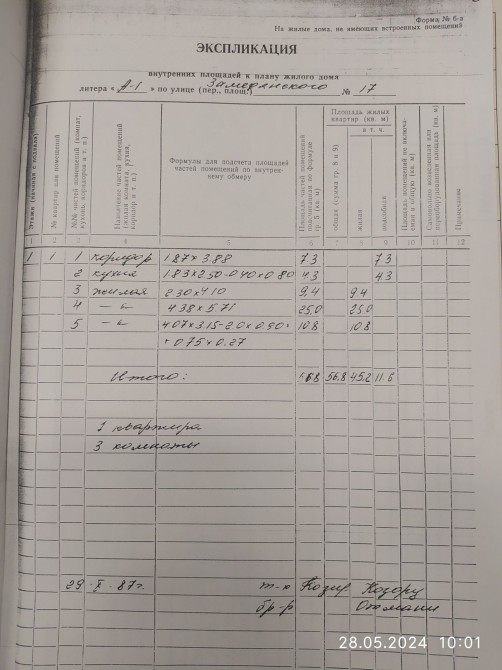 Форма № 6-в
На жилые дома, не имеющих встроенных помещений
ЭКСПЛИКАЦИЯ
внутренних площадей к плану жилого дома
литера « А-1 » по улице (пер., площ.) № 17
Этажи (начиная с подвала)
№ квартир или помещений
№№ частей помещений (комнат, кухонь, коридоров и т. п.)
Назначение частей помещений (жилая комната, кухня, коридор и т. п.)
Формулы для подсчета площадей частей помещений по внутреннему обмеру
Площадь частей помещений подсчитанная по формуле гр. 5 (кв. м)
Площадь жилых квартир (кв. м)
общая (сумма гр. 8 и 9)
в т. ч.
жилая
подсобная
Примечания
1 2 3 4 5 6 7 8 9 10 11 12
1 1 1 коридор 1.87 × 3.88 7.3 7.3
2 кухня 1.83 × 2.50 - 0.40 × 0.80 4.3 4.3
3 жилая 2.30 × 4.10 9.4 9.4
4 4.38 × 5.71 25.0 25.0
5 4.07 × 3.15 - 2.0 × 0.90 + 10.8 10.8
+ 0.75 × 0.27
Итого: 56.8 56.8 45.2 11.6
1 квартира
3 комнаты
29 · X · 87г.
т-к
бр-р
28.05.2024 10:01